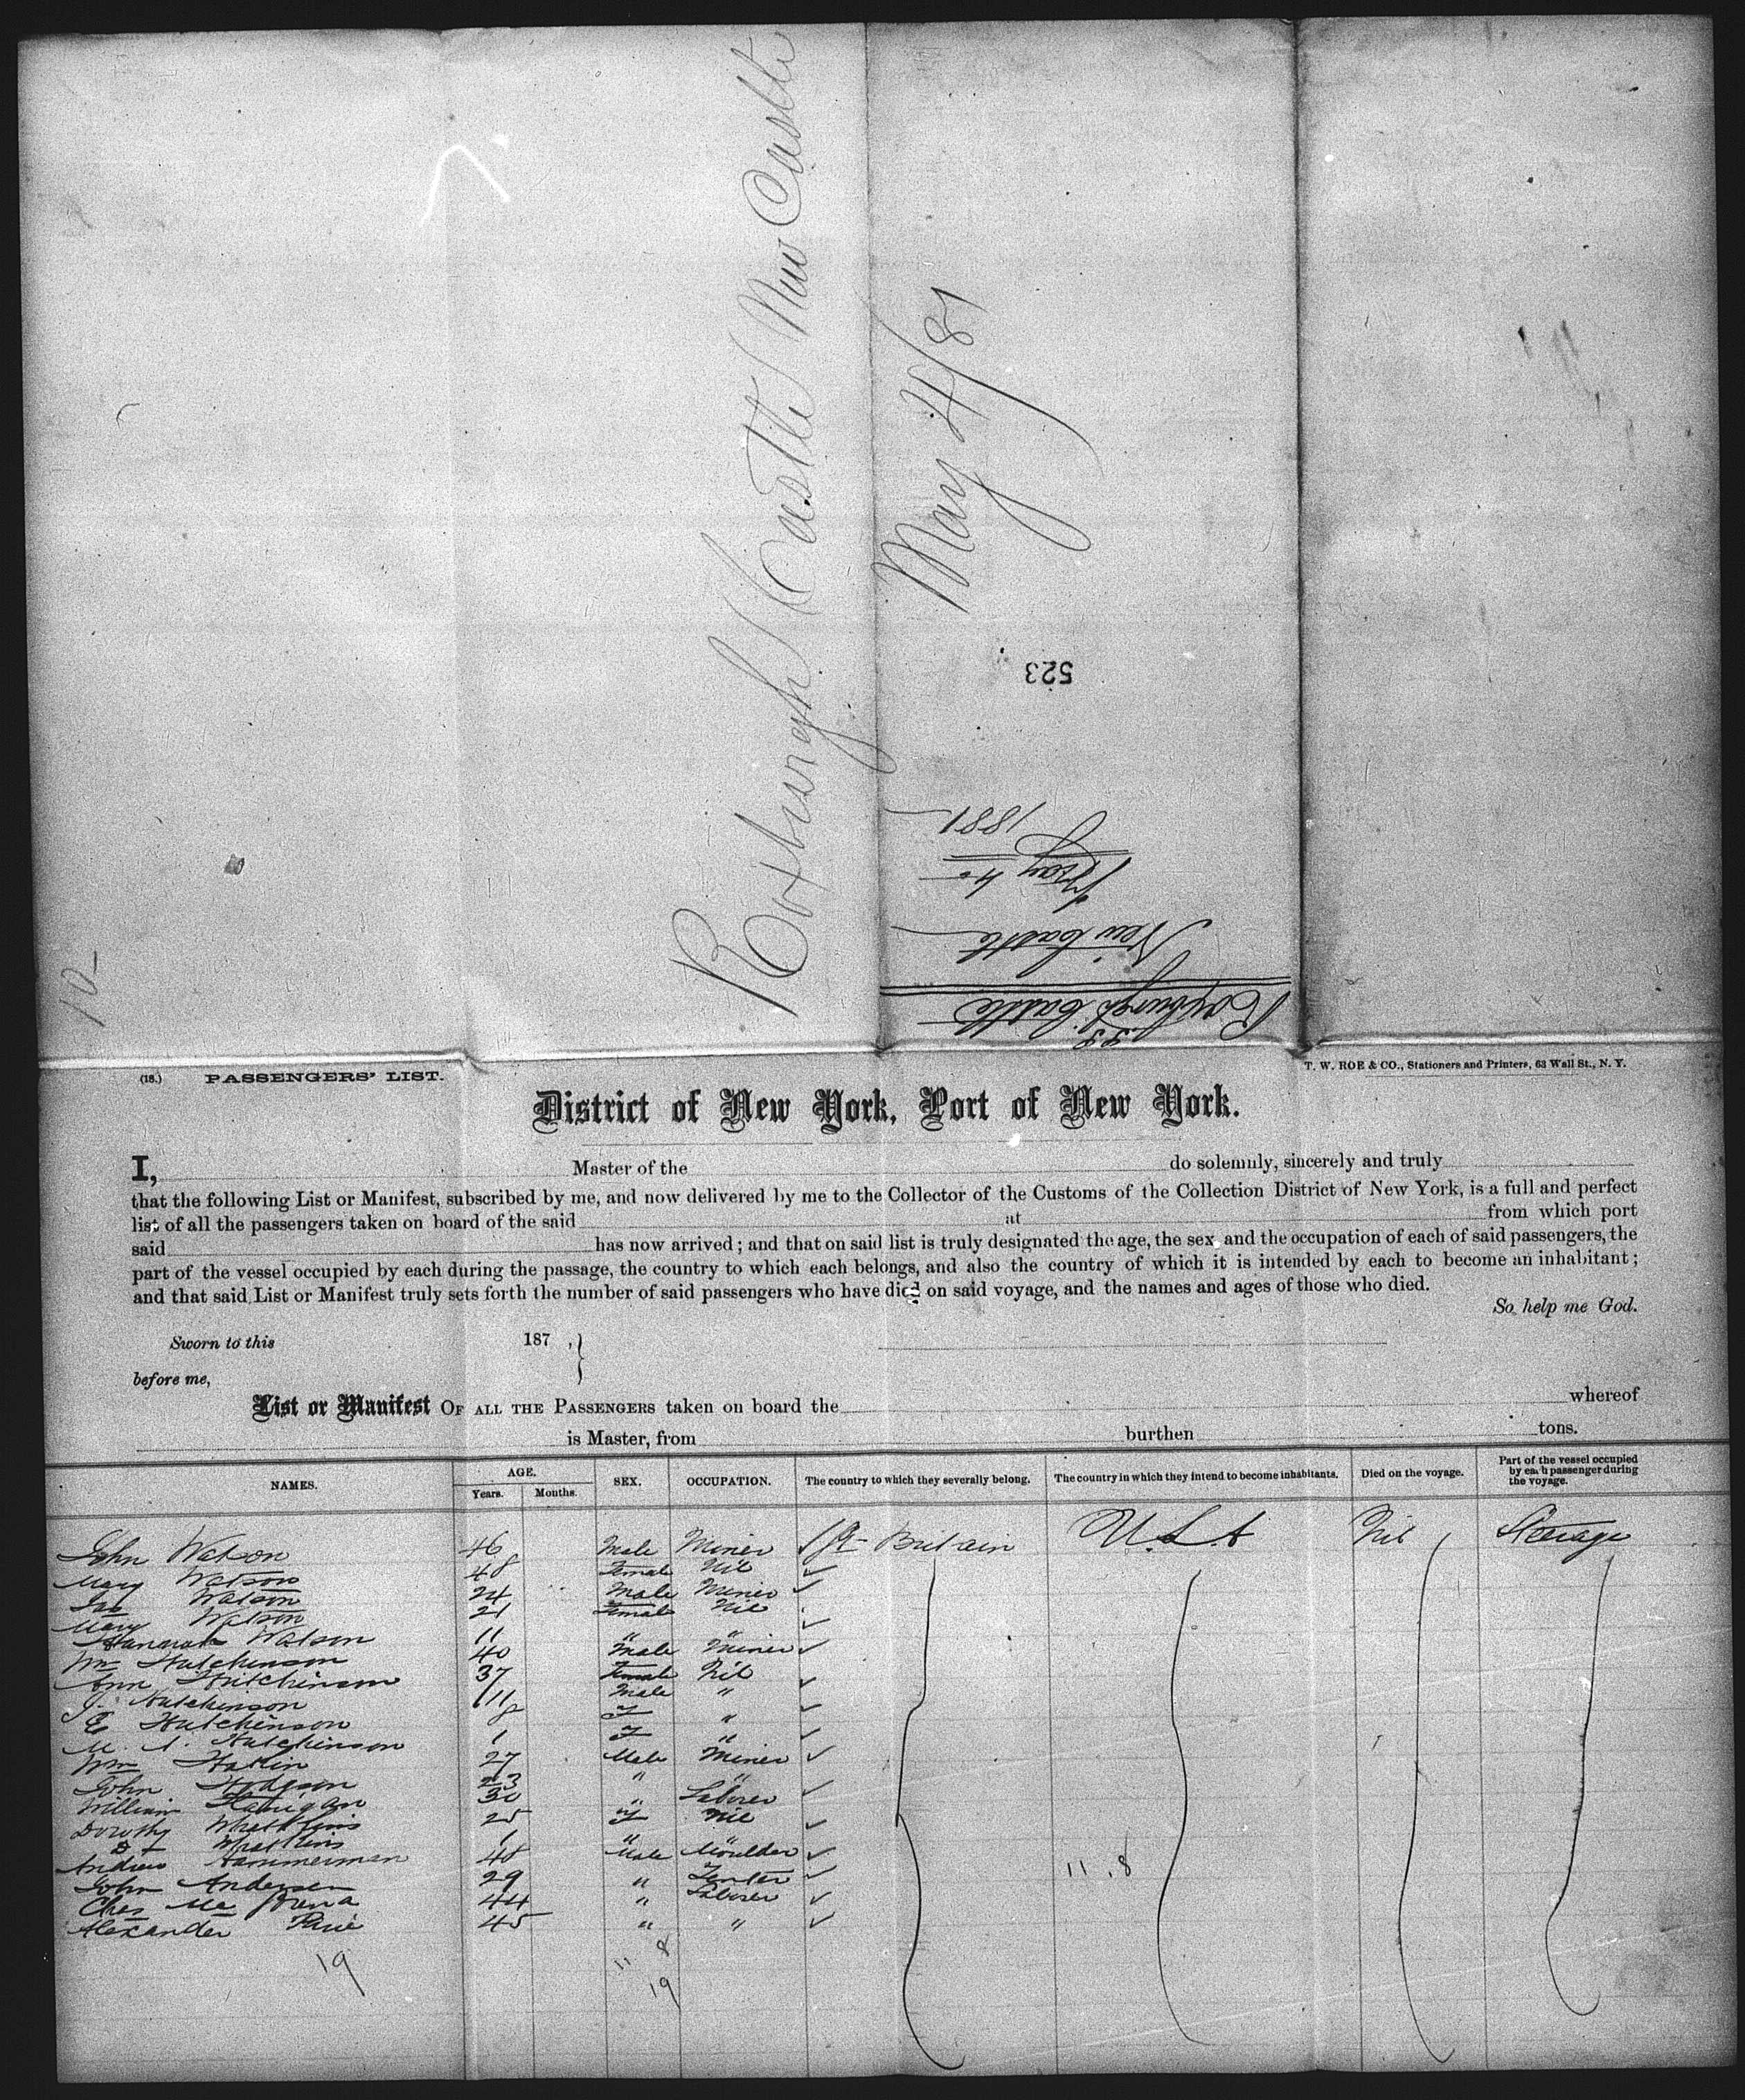 Roxburgh Castle New Castle
May 4/81
523
S.S.
Roxburgh Castle
New Castle
May 4
1881
10-
(18.) PASSENGERS' LIST.
T. W. ROE & CO., Stationers and Printers, 63 Wall St., N. Y.
District of New York, Port of New York.
I, Master of the do solemnly, sincerely and truly
that the following List or Manifest, subscribed by me, and now delivered by me to the Collector of the Customs of the Collection District of New York, is a full and perfect
list of all the passengers taken on board of the said at from which port
said has now arrived; and that on said list is truly designated the age, the sex, and the occupation of each of said passengers, the
part of the vessel occupied by each during the passage, the country to which each belongs, and also the country of which it is intended by each to become an inhabitant;
and that said List or Manifest truly sets forth the number of said passengers who have died on said voyage, and the names and ages of those who died.
So help me God.
Sworn to this 187 ,}
before me,
List or Manifest OF ALL THE PASSENGERS taken on board the whereof
is Master, from burthen tons.
NAMES. AGE. Years. Months. SEX. OCCUPATION. The country to which they severally belong. The country in which they intend to become inhabitants. Died on the voyage. Part of the vessel occupied by each passenger during the voyage.
John Watson 46 Male Miner Gt Britain U.S.A Nil Steerage
Mary Watson 48 Female Nil
Watson 24 Male Miner
Mary Watson 21 Female Nil
Hannah Watson 11 " "
Wm Hutchinson 40 Male Miner
Ann Hutchinson 37 Female Nil
J. Hutchinson 11 Male "
E Hutchinson 8 F "
M. A. Hutchinson 1 F "
Wm 27 Male Miner
John Hodgson 23 " "
William Flanigan 30 " Laborer
Dorothy 25 F Nil
1 " "
Andrew Hammerman 48 Male Moulder
John Andersen 29 "
Chas Mc 44 " Laborer
Alexander 45 " "
19
11 8
19
11 . 8